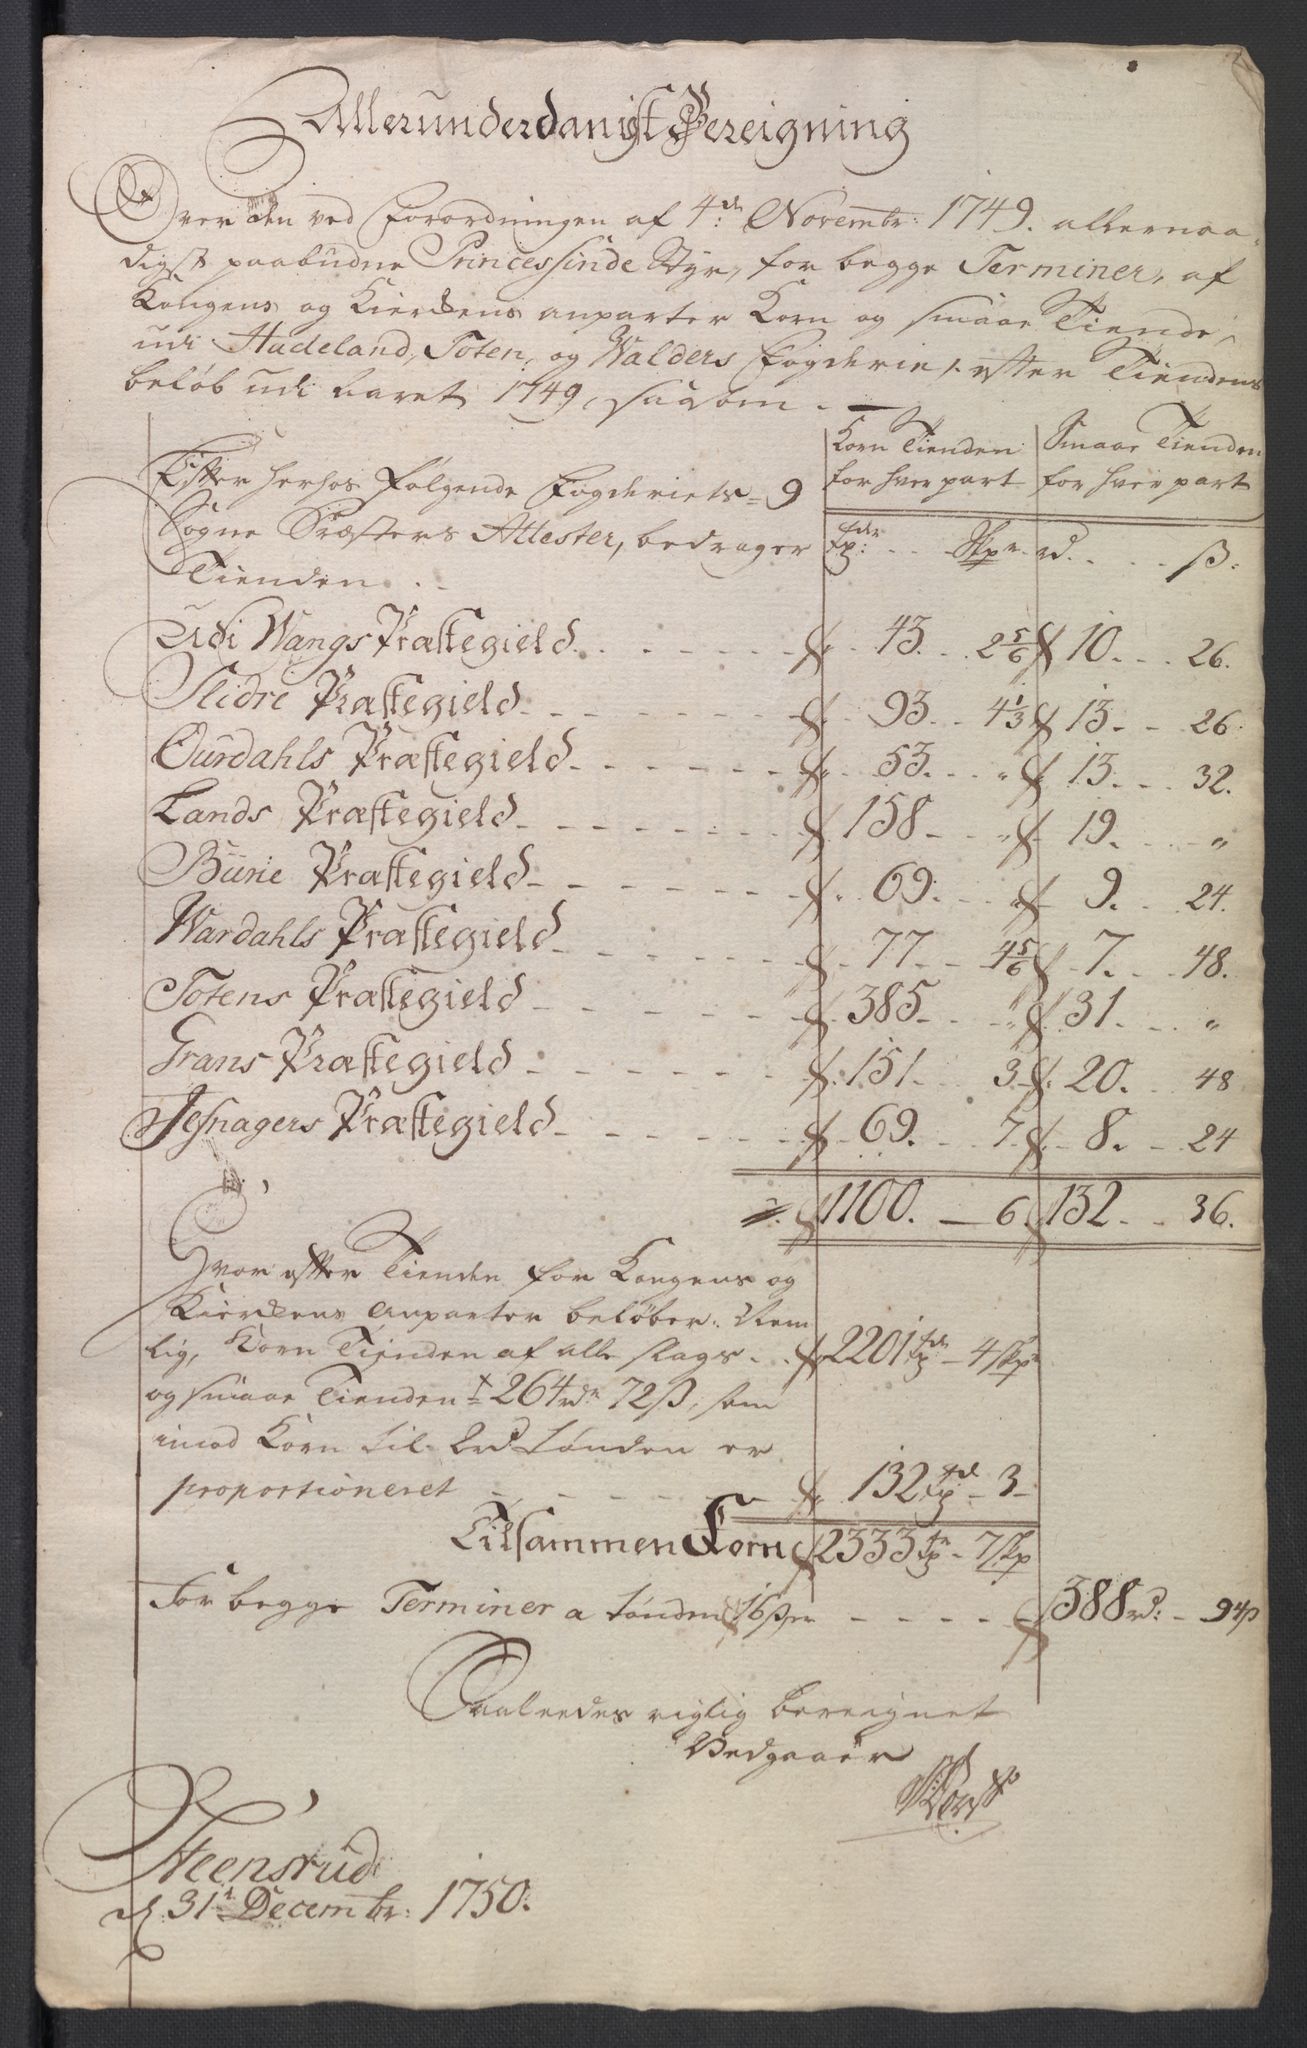 Allerunderdanigst Bereigning
Over den ved Forordningen af 4de Novembr: 1749. allernaa-
digst paabudne Princessinde Styr, for begge Terminer, af
Kongens og Kierckens anparter Korn og smaae Tiende,
udi Hadeland, Toten, og Walders Fogderie, efter Tiendens
beløb udi Aaret 1749, saasom. —
Korn Tienden Smaae Tienden
for hver part for hver part
Efter herhos følgende Fogderiets 9
Sogne Præsters Attester, bedrager
Tienden . .
Tdr: . . Skpr rd. . . . ß:
Udi Wangs Præstegield. . . 43. . 2 5/6 10. . . 26.
Slidre Præstegield. 93. . 4 1/3 13. . . 26.
Ourdahls Præstegield. 53. . " 13. . . 32.
Lands Præstegield. 158 " 19. . . "
Biirie Præstegield 69. " 9. . 24.
Wardahls Præstegield 77 4 5/6 7. 48.
Totens Præstegield 385 " 31. "
Grans Præstegield 151 3 20. 48
Jesnagers Præstegield 69. 7 8. 24
1100. — 6. 132. 36.
Hvor efter Tienden for Kongens og
Kierckens Anparter beløber: Nem-
lig, Korn Tienden af alle slags . . 2201 tdr 4 skpr
og smaae Tienden 264 rdr 72 ß, som
imod Korn til 2 rd Tønden er
proportioneret 132 td 3
Tilsammen Korn 2333 tdr 7 skp
For begge Terminer a Tønden 16 ß er 388 rd: 94 ß
Saaledes rigtig bereignet
Vedgaaer
Steensrud
d 31t Decembr: 1750.